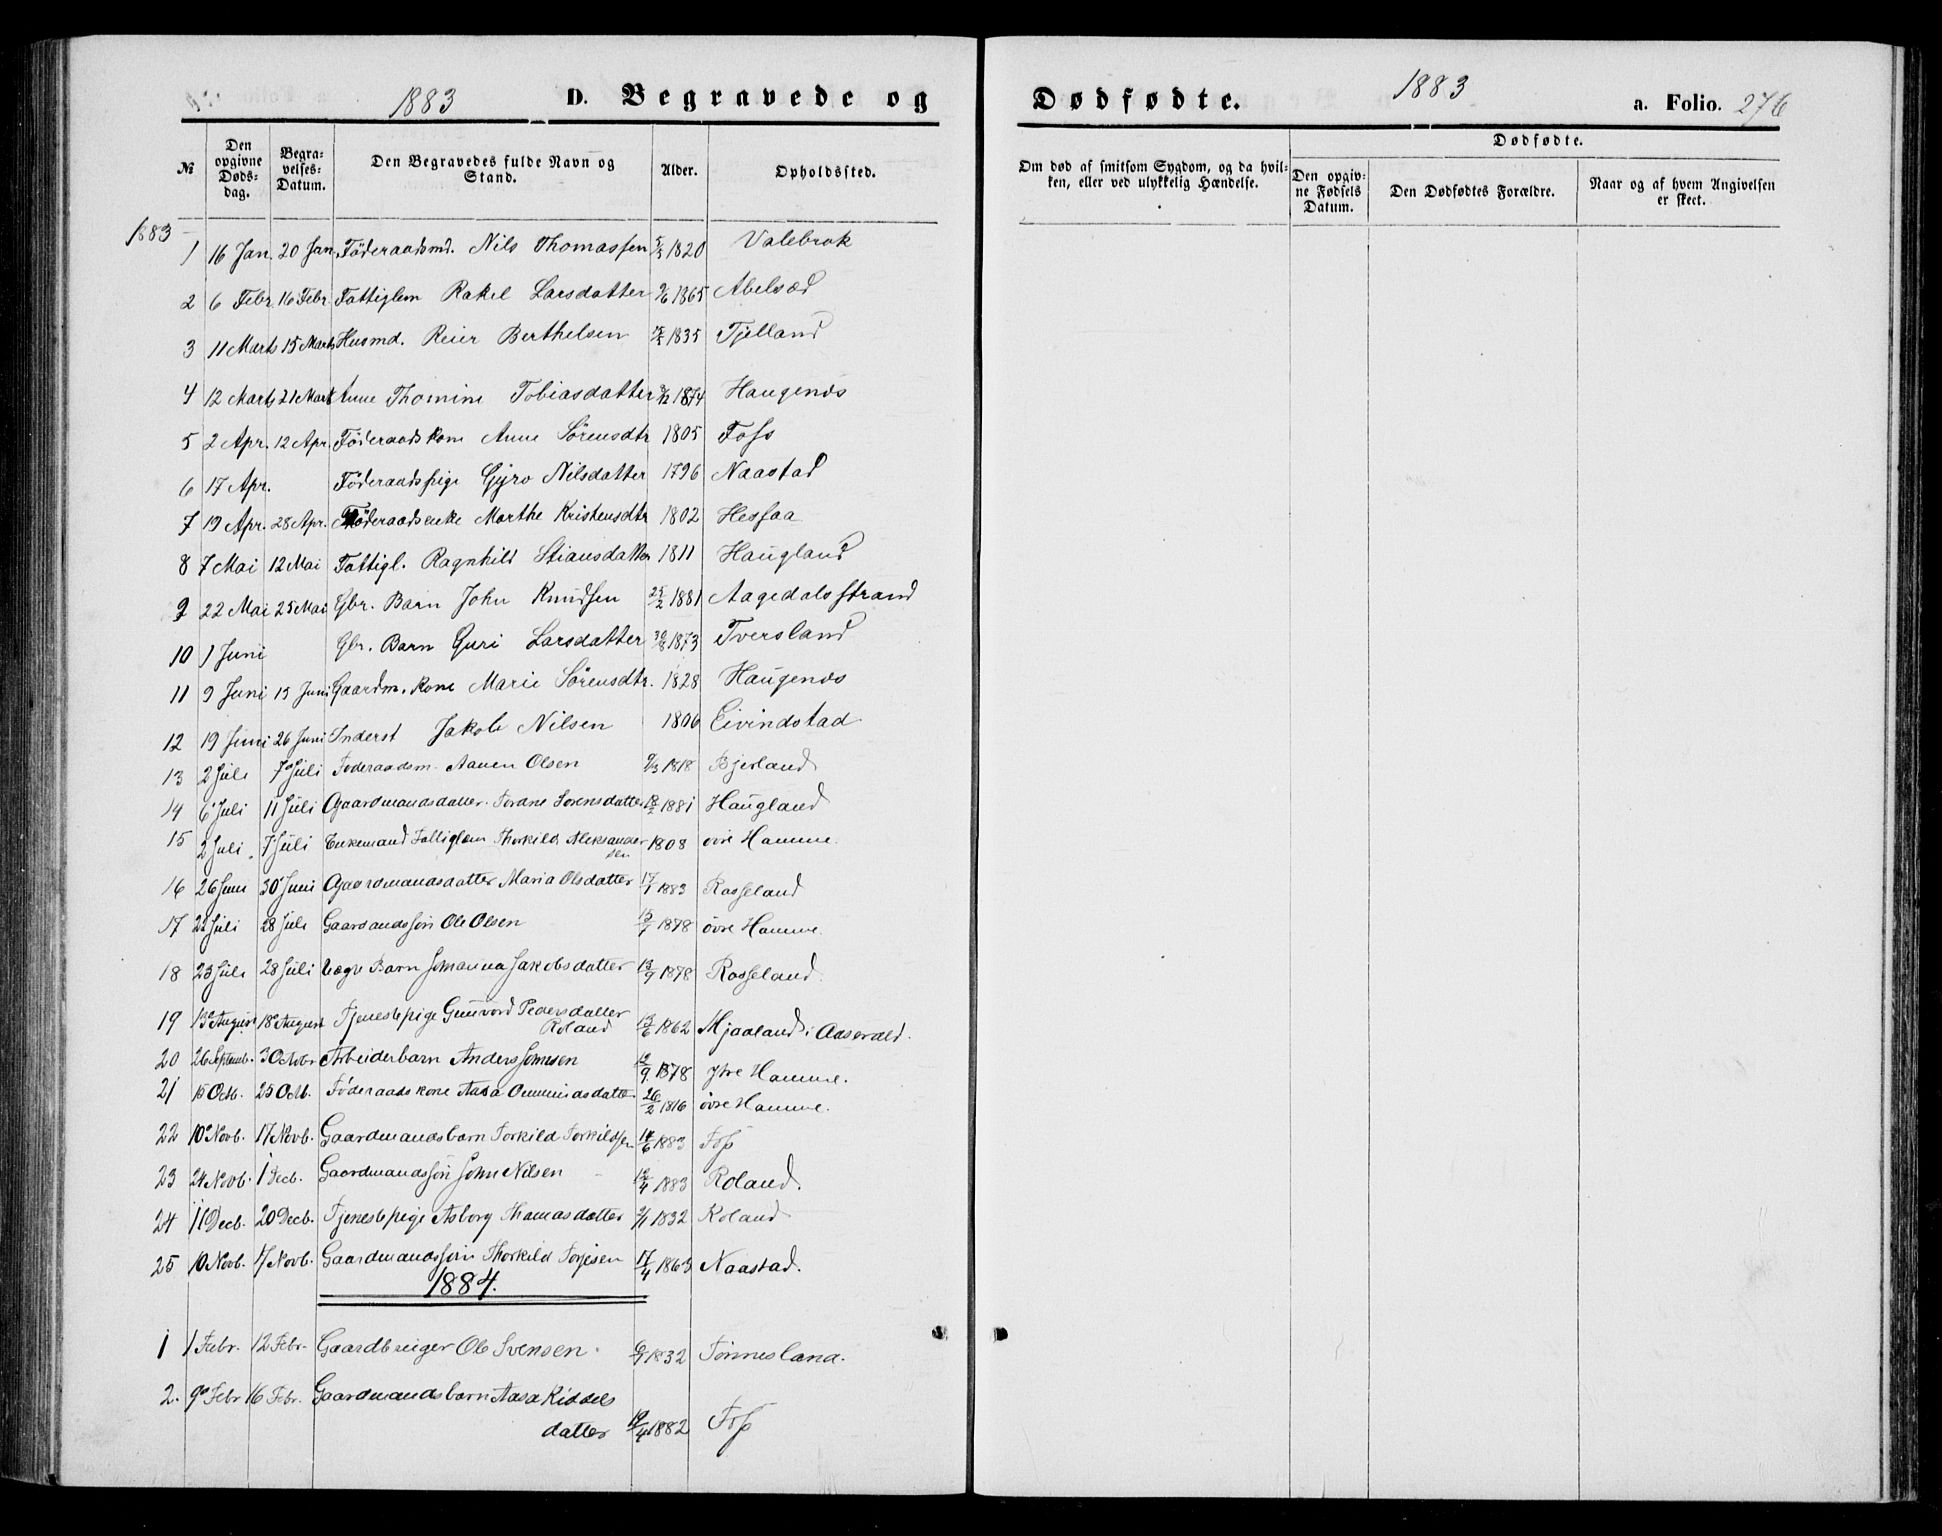 1883 D. Begravede og
Dødfødte. 1883 a. Folio. 276
№ Den opgivne Døds-dag. Begra-velses-Datum. Den Begravedes fulde Navn og Stand. Alder. Opholdssted.
Om død af smitsom Sygdom, og da hvil-ken, eller ved ulykkelig Hændelse. Dødfødte. Den opgiv-ne Fødsels Datum. Den Dødfødtes Forældre. Naar og af hvem Angivelsen er skeet.
1883
1 16 Jan. 20 Jan. Föderaadsmd. Nils Thomassen 1820 Valebrok
2 6 Febr. 16 Febr. Fattiglem Rakel Larsdatter 1865 Abelsæd
3 11 Marts 15 Marts Husmd. Reier Berthelsen 1835 Tjelland
4 12 Marts 21 Marts Anne Thomine Tobiasdatter 1874 Haugenes
5 2 Apr. 12 Apr. Föderaadskone Anne Sörensdtr 1805 Foss
6 17 Apr. Föderaadspige Gyro Nilsdatter 1796 Naastad
7 19 Apr. 28 Apr. Föderaadsenke Marthe Kristensdtr 1802 Hesfaa
8 7 Mai 12 Mai Fattigl. Ragnhild Stiansdatter 1811 Haugland
9 22 Mai 25 Mai Gbr. Barn John Knudsen 25/2 1881 Aagedalsstrand
10 1 Juni Gbr. Barn Guri Larsdatter 30/8 1873 Tversland
11 9 Juni 15 Juni Gaardm. kone Marie Sörensdtr. 1828 Haugenes
12 19 Juni 26 Juni Inderst Jakob Nilsen 1806 Eivindstad
13 2 Juli 7 Juli Föderaadsm. Aanen Olsen 1818 Bjerland
14 6 Juli 11 Juli Gaardmandsdatter Tordne Sörensdatter 1881 Haugland
15 2 Juli 7 Juli Enkemand Fattiglem Thorkild Aleksander
sen 1808 övre Homme.
16 26 Juni 30 Juni Gaardmandsdatter Maria Olsdatter 17/1 1883 Rosseland
17 22 Juli 28 Juli Gaardandssön Ole Olsen 15/7 1878 övre Homme.
18 23 Juli 28 Juli Lægd Barn Johanna Jakobsdatter 13/9 1878 Rosseland.
19 13 August 18 August Tjenestepige Gunvord Pedersdatter
Roland 13/6 1862 Mjaaland i Aaserald.
20 26 Septemb. 3 Octobr Arbeiderbarn Anders Johnsen 12/9 1878 Ytre Homme.
21 15 Octb. 25 Octb. Föderaadskone Aasa Ommundsdatter 26/2 1816 övre Homme.
22 10 Novb. 17 Novb. Gaardmandsbarn Torkild Torkildsen 14/6 1883 Foss
23 24 Novb. 1 Decb. Gaardmandssön John Nilsen 12/4 1883 Roland.
24 11 Decb. 20 Decb. Tjenestepige Asborg Thomasdatter 1832 Roland
25 10 Novb. 17 Novb. Gaardmandssön Thorkild Torjesen 17/4 1863 Naastad.
1884.
1 1 Febr. 12 Febr. Gaardbruger Ole Svensen 1832 Tönnesland.
2. 9 Febr 16 Febr. Gaardmandsbarn Aasa Kiddels
datter 19/4 1882 Foss